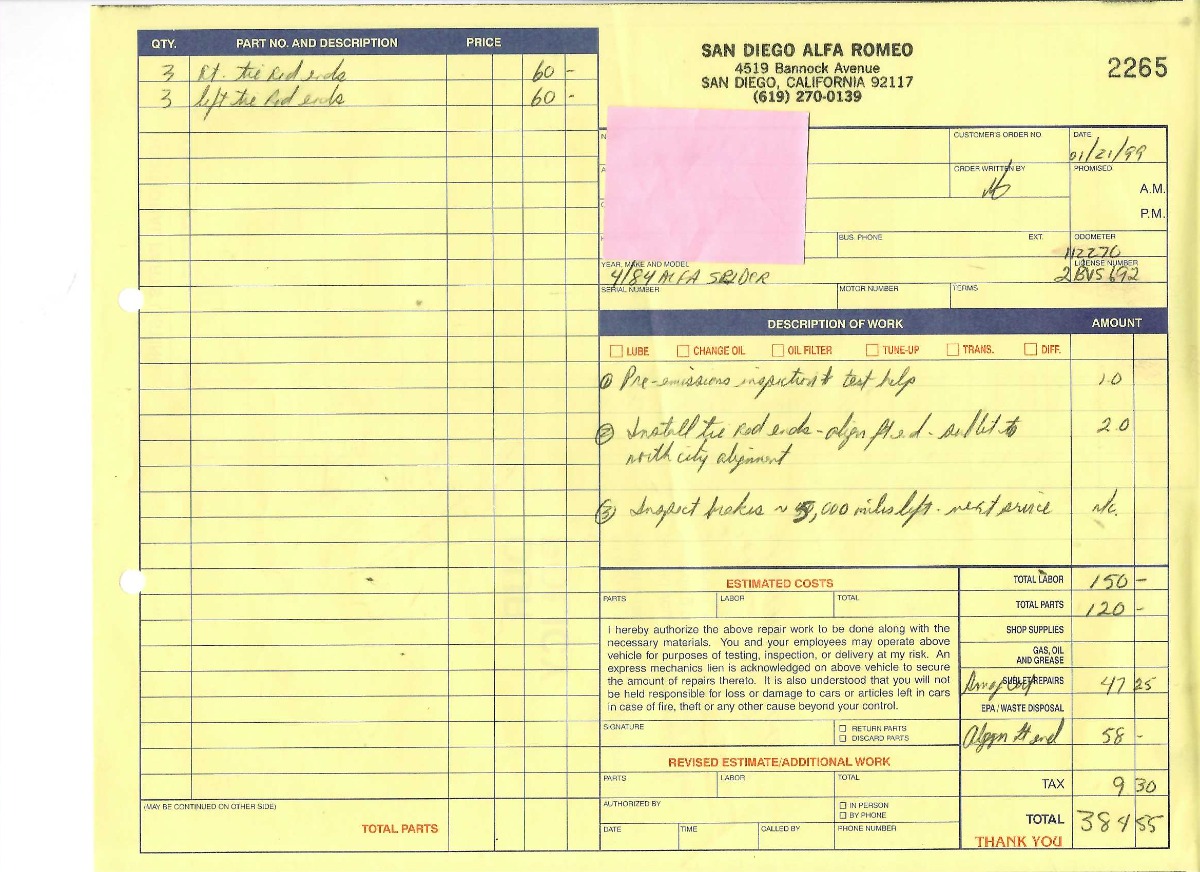 QTY. PART NO. AND DESCRIPTION PRICE
3 Rt. tie Rod ends 60 -
3 left tie Rod ends 60 -
(MAY BE CONTINUED ON OTHER SIDE)
TOTAL PARTS
SAN DIEGO ALFA ROMEO
4519 Bannock Avenue
SAN DIEGO, CALIFORNIA 92117
(619) 270-0139
2265
CUSTOMER'S ORDER NO. DATE
01/21/99
ORDER WRITTEN BY PROMISED
A.M.
P.M.
BUS. PHONE EXT. ODOMETER
112270
YEAR, MAKE AND MODEL LICENSE NUMBER
4/84 ALFA SPIDER 2BVS692
SERIAL NUMBER MOTOR NUMBER TERMS
DESCRIPTION OF WORK AMOUNT
LUBE CHANGE OIL OIL FILTER TUNE-UP TRANS. DIFF.
① Pre-emissions inspection & test help 1.0
② Install tie Rod ends - align ft end - sublet to 2.0
north city alignment
③ Inspect brakes ~ 5,000 miles left - next service n/c.
ESTIMATED COSTS
PARTS LABOR TOTAL
I hereby authorize the above repair work to be done along with the
necessary materials. You and your employees may operate above
vehicle for purposes of testing, inspection, or delivery at my risk. An
express mechanics lien is acknowledged on above vehicle to secure
the amount of repairs thereto. It is also understood that you will not
be held responsible for loss or damage to cars or articles left in cars
in case of fire, theft or any other cause beyond your control.
SIGNATURE RETURN PARTS
DISCARD PARTS
REVISED ESTIMATE/ADDITIONAL WORK
PARTS LABOR TOTAL
AUTHORIZED BY IN PERSON
BY PHONE
DATE TIME CALLED BY PHONE NUMBER
TOTAL LABOR 150 -
TOTAL PARTS 120 -
SHOP SUPPLIES
GAS, OIL
AND GREASE
SUBLET REPAIRS 47 25
EPA / WASTE DISPOSAL
Align ft end 58 -
TAX 9 30
TOTAL 384 55
THANK YOU